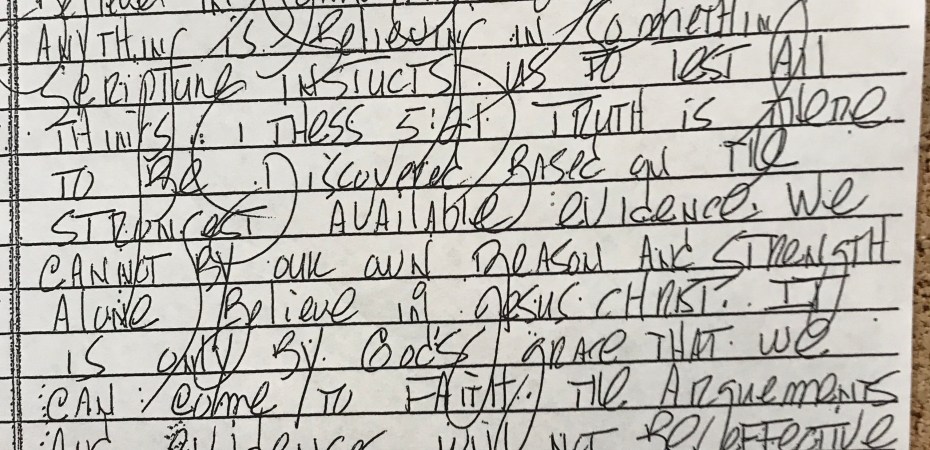 ANYTHING is Believing IN Something
Scripture INSTUCTS us TO TEST All
THINGS (1 THESS 5:21) TRUTH is THere
TO Be Discovered BASed on THe
STRONGEST AVAilABle eviDeNCe. We
CANNOT By OUR OWN ReASON AND STRENGTH
Alone Believe in Jesus CHRIST. IT
is only By God's GRACe THAT We
CAN Come TO FAITH. THe ArgueMENTS
AND eviDeNCe will NOT Be effective